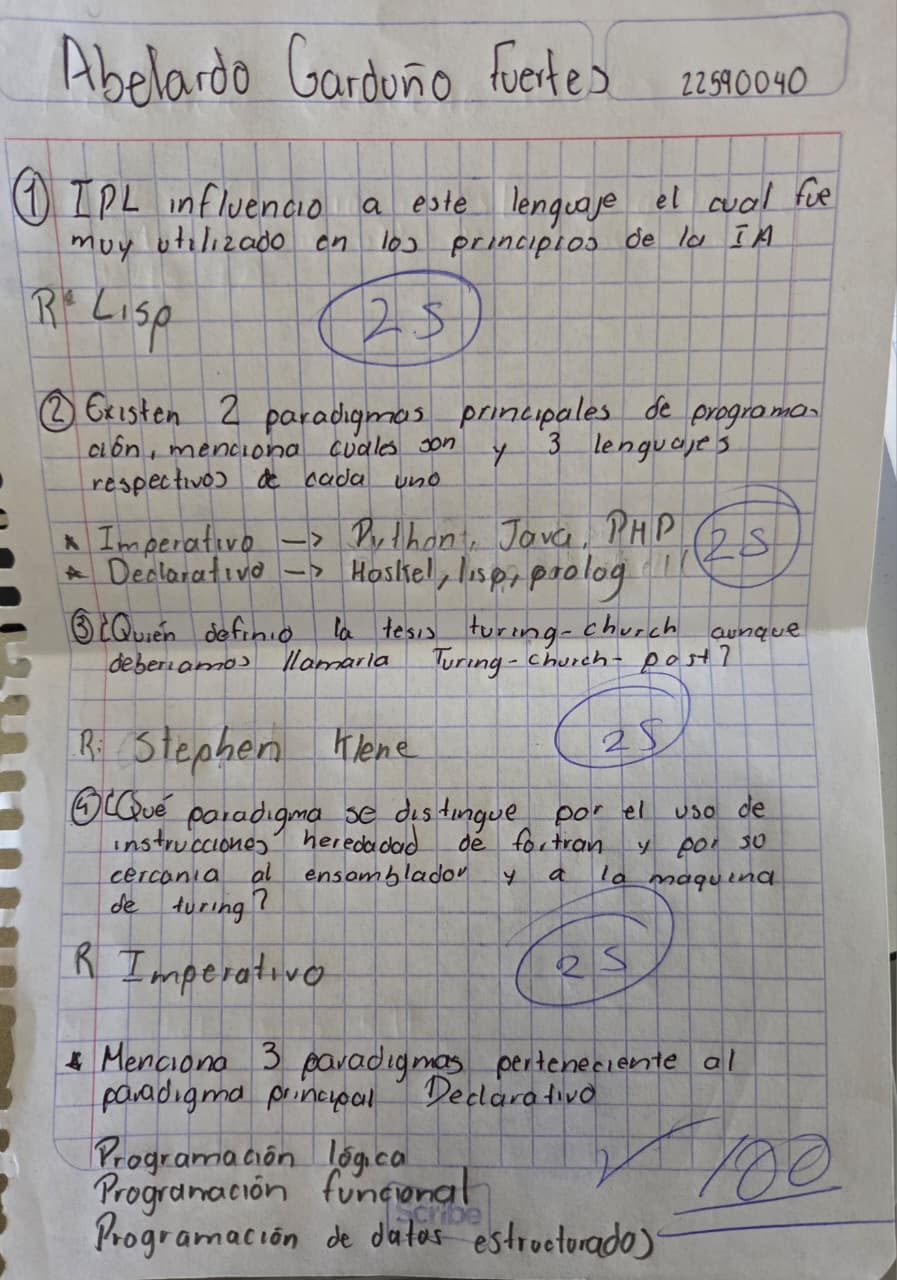 Abelardo Garduño Fuertes 22590040
① IPL influencio a este lenguaje el cual fue
muy utilizado en los principios de la IA
R: Lisp 25
② Existen 2 paradigmas principales de programa-
ción, menciona cuales son y 3 lenguajes
respectivos de cada uno
* Imperativo -> Python, Java, PHP 25
* Declarativo -> Haskel, lisp, prolog
③ ¿Quién definio la tesis turing-church aunque
deberiamos llamarla Turing-church-post?
R: Stephen Klene 25
④ ¿Qué paradigma se distingue por el uso de
instrucciones heredadad de fortran y por so
cercania al ensamblador y a la maquina
de turing?
R Imperativo 25
* Menciona 3 paradigmas perteneciente al
paradigma principal Declarativo
Programación lógica
Programación funcional 100
Scribe
Programación de datos estructurados